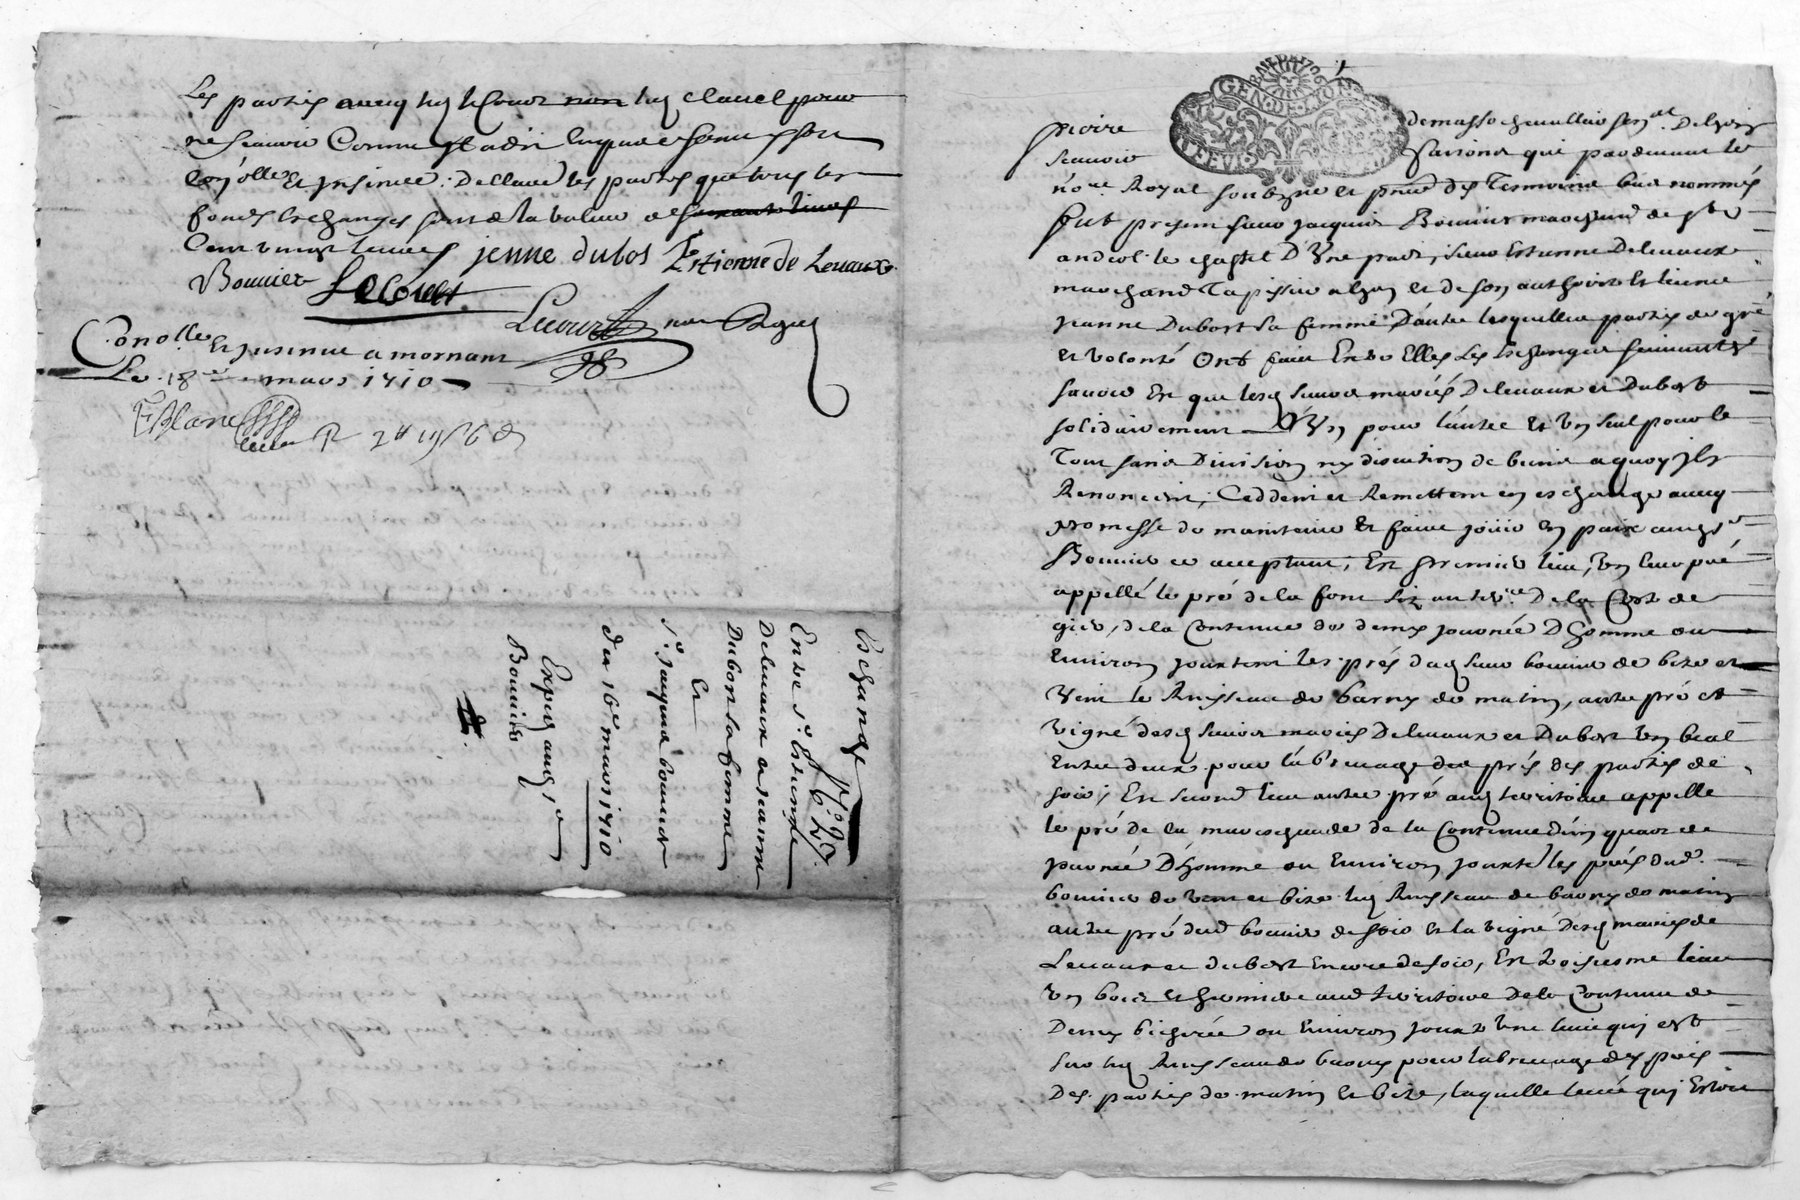 Les parties avecq led Lecourt non led Clavel pour
ne scavoir Comme Il a dit enquis et somme sera
Conollé et Insinué. Declarent les parties que tous les
fonds Eschanges sont de la valeur de soixante livres
Cent vingt livres jenne dubos Estienne de Levaux
Bouvier Lecourt
Lecourt no.re Royal
Conollé et Insinué a mornant
Le 18e mars 1710
Blanc
Eschange
Entre Sr Estienne
Delevaux et Jeanne
Dubort sa femme
Et
Sr Jaques bouvier
du 16e mars 1710
Exped aud Sr
Bouvier
GEN. DE LYON
Pierre demasso chevallier sen.al De Lyon
scavoir faisons qui pardevant le
no.re Royal soubzne et presens des Tesmoins bas nommés
fut present sieur Jacques Bouvier marchand de St
andeol le chastel D'Une part, sieur Estienne Delevaux
marchand Tapissier a Lyon et de son authorité licence
Jeanne Dubort sa femme D'autre lesquelles parties de gré
et volonté Ont faict Entre Elles Les Eschanges suivants
scavoir Est que lesd sieurs mariés Delevaux et Dubort
solidairement L'Un pour l'autre et Un seul pour le
Tout sans Division ny discution de biens a quoy Ils
Renoncent, Ceddent et Remettent en eschange avecq
promesse de maintenir et faire jouir en paix aud Sr
Bouvier ce acceptant, En premier lieu, Un leur pré
appellé le pré de la font situé au terr.re De la Coste de
gier, de la Contenue de demy journée D'homme ou
Environ jouxtant les prés dud sieur bouvier de bize et
Vent le Ruisseau de barny de matin, autre pré et
vigne desd sieurs mariés Delevaux et Dubort Un beal
Entre deux pour l'abreuvage des prés des parties de
soir; En second lieu autre pré aud territoire appellé
le pré de la mareschaude de la Contenue d'un quart de
journée D'homme ou Environ jouxte les prés dud
bouvier de vent et bize led Ruisseau de barny de matin
autre pré dud bouvier de soir et la vigne desd mariés de
Levaux et dubort Encore de soir, En troisiesme lieu
Un bois et hermire aud territoire De la Contenue de
Demy bicherée ou Environ jouxte Une levée qui est
sur led Ruisseau de barny pour labreuvage des prés
Des parties de matin et bize, laquelle levée qui Estoit